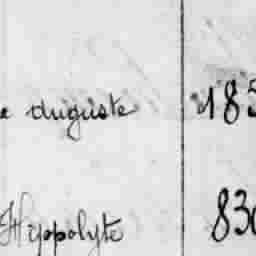 e Auguste 185
Hippolyte 830